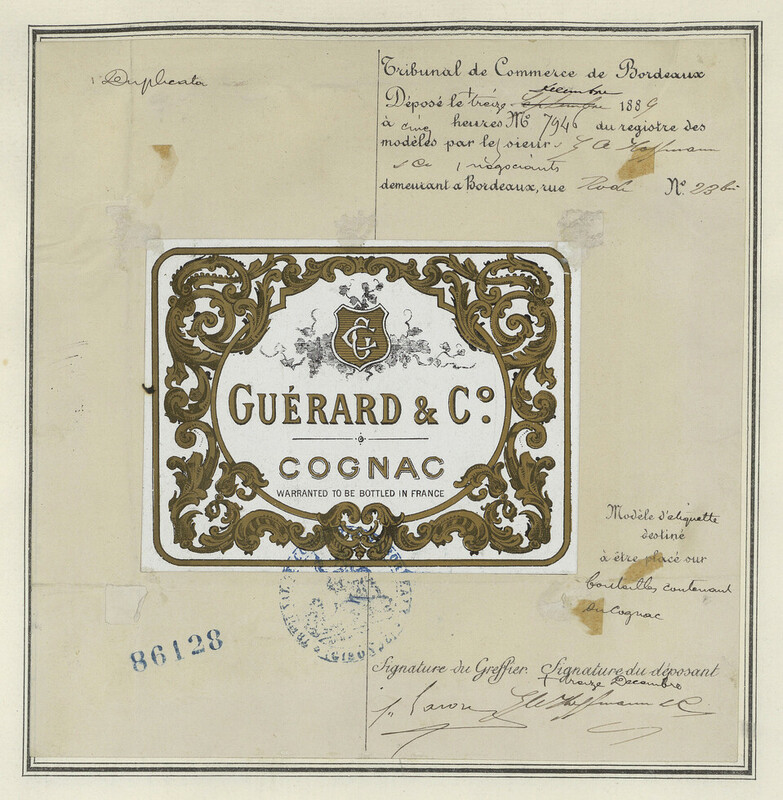 Duplicata
Tribunal de Commerce de Bordeaux
décembre
Déposé le treize septembre 1889
à cinq heures N° 7946 du registre des
modèles par le sieur Hoffmann
& Cie négociants
demeurant à Bordeaux, rue N° 23 bis
GUÉRARD & Cº.
COGNAC
WARRANTED TO BE BOTTLED IN FRANCE
Modèle d'étiquette
destiné
à être placé sur
bouteilles contenant
du Cognac
86128
Signature du Greffier. Signature du déposant
treize Décembre
Hoffmann & C